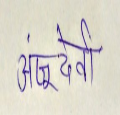 अंजू देवी